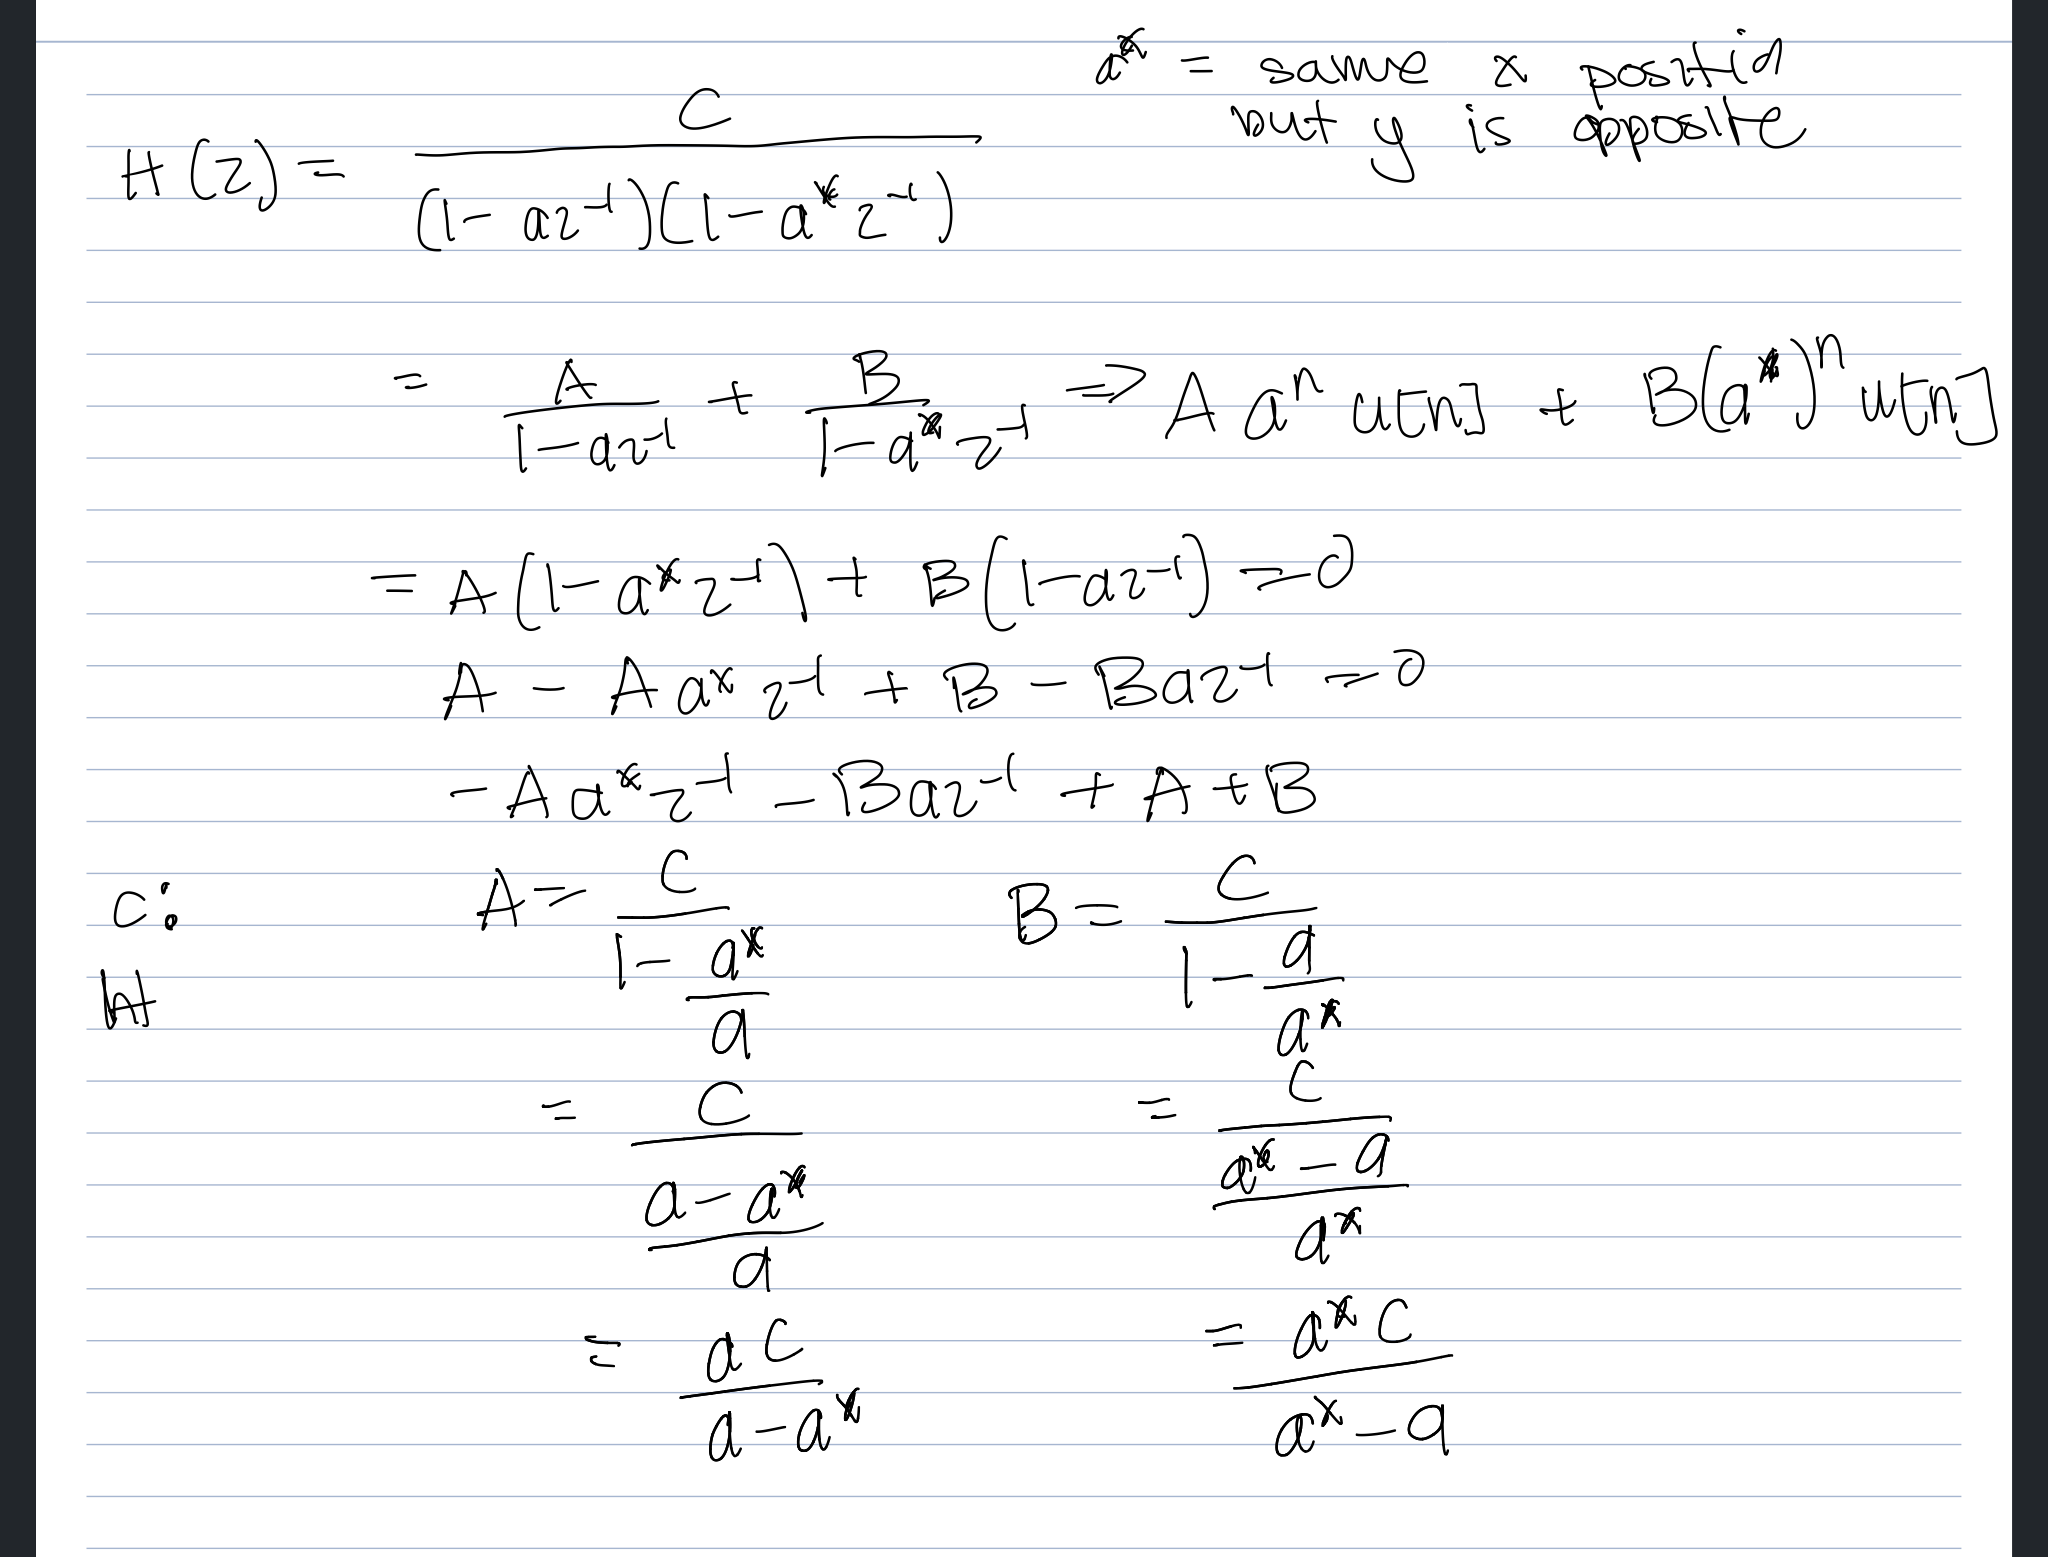 a* = same x position
but y is opposite
H(z) = C / ((1 - az⁻¹)(1 - a*z⁻¹))
= A / (1 - az⁻¹) + B / (1 - a*z⁻¹) => A aⁿ u[n] + B(a*)ⁿ u[n]
= A(1 - a*z⁻¹) + B(1 - az⁻¹) = 0
A - A a* z⁻¹ + B - Baz⁻¹ = 0
- A a* z⁻¹ - Baz⁻¹ + A + B
C: A = C / (1 - a*/a) B = C / (1 - a/a*)
= C / ((a - a*)/a) = C / ((a* - a)/a*)
= a C / (a - a*) = a* C / (a* - a)